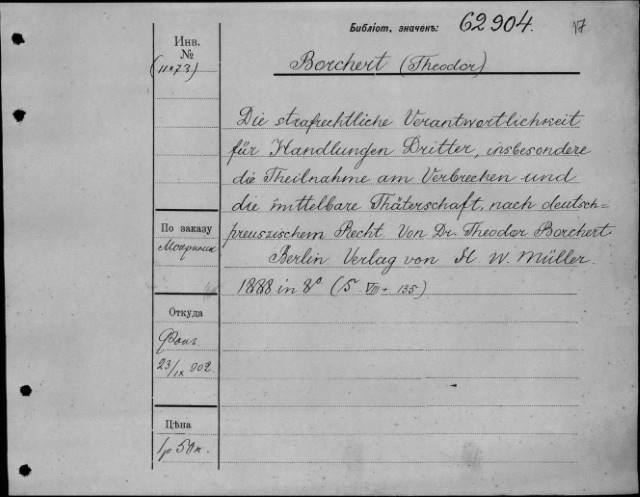 Библіот. значекъ: 62904. 17
Инв.
№
(11873)
Borchert (Theodor)
Die strafrechtliche Verantwortlichkeit
für Handlungen Dritter, insbesondere
die Theilnahme am Verbrechen und
die mittelbare Thäterschaft, nach deutsch=
preuszischem Recht. Von Dr. Theodor Borchert
Berlin Verlag von H. W. Müller.
1888 in 8° (S. VIII + 135)
По заказу
Откуда
23/IX 902
Цѣна
1р 50к.